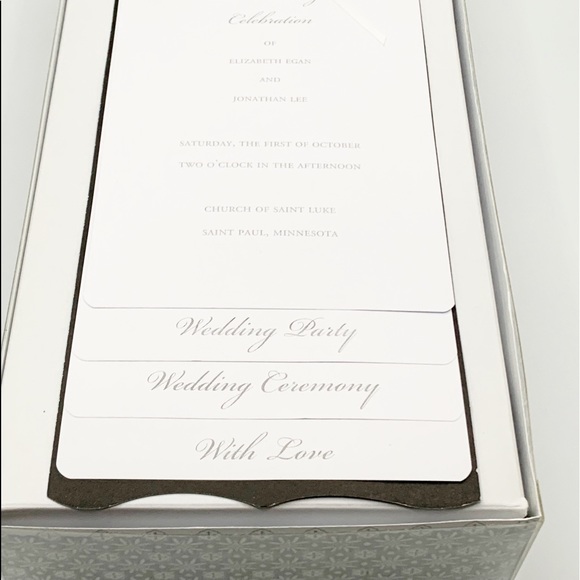 Celebration
OF
ELIZABETH EGAN
AND
JONATHAN LEE
SATURDAY, THE FIRST OF OCTOBER
TWO O'CLOCK IN THE AFTERNOON
CHURCH OF SAINT LUKE
SAINT PAUL, MINNESOTA
Wedding Party
Wedding Ceremony
With Love